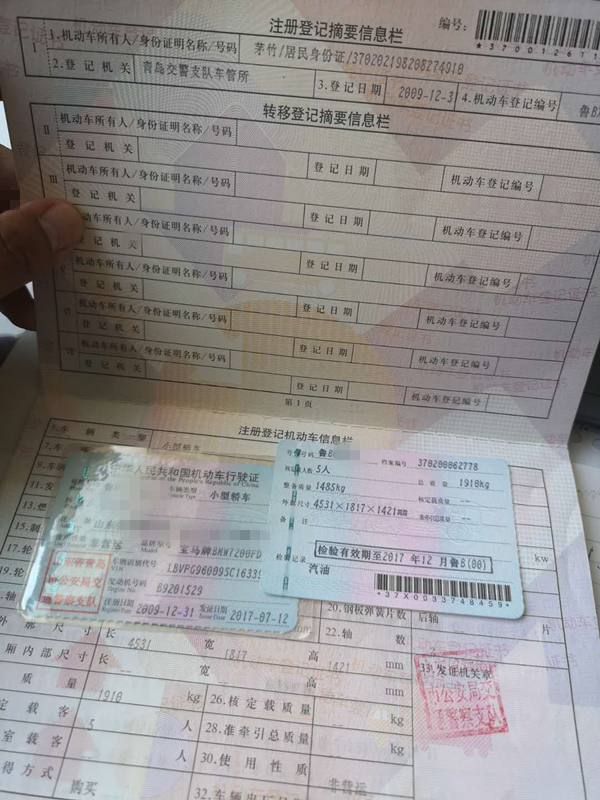 注册登记摘要信息栏
编号:
*370012611
1.机动车所有人/身份证明名称/号码 茅竹/居民身份证/370202198208274910
2.登记机关 青岛交警支队车管所 3.登记日期 2009-12-3 4.机动车登记编号 鲁B
转移登记摘要信息栏
II 机动车所有人/身份证明名称/号码
登记机关 登记日期 机动车登记编号
III 机动车所有人/身份证明名称/号码
登记机关 登记日期 机动车登记编号
机动车所有人/身份证明名称/号码
登记机关 登记日期 机动车登记编号
机动车所有人/身份证明名称/号码
登记机关 登记日期 机动车登记编号
机动车所有人/身份证明名称/号码
登记机关 登记日期 机动车登记编号
机动车所有人/身份证明名称/号码
登记机关 登记日期 机动车登记编号
第1页
注册登记机动车信息栏
5.车辆类型 小型轿车
中华人民共和国机动车行驶证
of the People's Republic of China
车辆类型 小型轿车
Vehicle Type
山东
非营运 品牌型号 宝马牌BMW7200FD
Model
车辆识别代号 LBVFG96009SC1633
VIN
发动机号码 B9201529
Engine No.
注册日期 2009-12-31 发证日期 2017-07-12
Register Date Issue Date
公安局交
警察支队
号牌号码 鲁B 档案编号 370200062778
核定载人数 5人 总质量 1910kg
整备质量 1485kg 核定载质量 --
外廓尺寸 4531×1817×1421mm 准牵引总质量 --
备注
检验记录 检验有效期至2017年12月鲁B(00)
汽油
*37X0033748459*
kw
20.钢板弹簧片数 后轴 片
22.轴数
外廓尺寸 长 4531 宽 1817 高 1421 mm 33.发证机关章
厢内部尺寸 长 -- 宽 -- 高 -- mm
质量 1910 kg 26.核定载质量 -- kg
定载客 5 人 28.准牵引总质量 -- kg
室载客 -- 人 30.使用性质 非营运
得方式 购买 32.车辆出厂日期
公安局交
警察支队